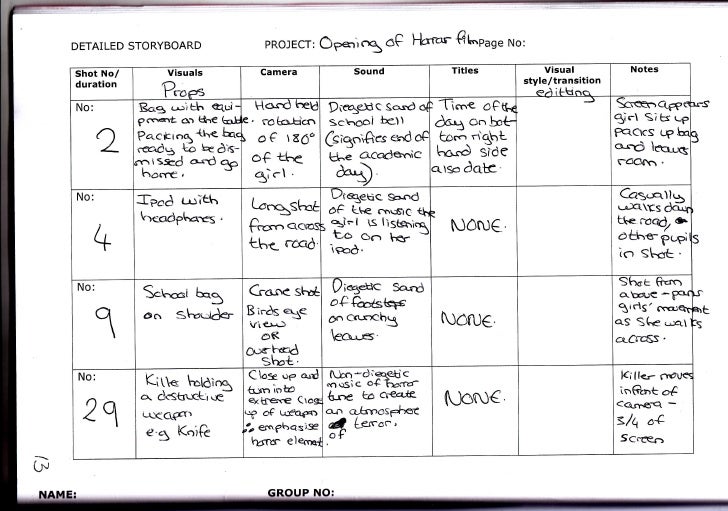 DETAILED STORYBOARD PROJECT: Opening of Horror film Page No:
Shot No/ duration Visuals Camera Sound Titles Visual style/transition Notes
Props editting
No:
2
Bag with equi-
pment on the table.
Packing the bag
ready to be dis-
missed and go
home.
Hand held
rotation
of 180°
of the
girl.
Diegetic sand of
school bell
(signifies end of
the academic
day).
Time of the
day on bot-
tom right
hand side
also date.
Screen appears
girl sits up
packs up bag
and leaves
room.
No:
4
Ipod with
headphones.
Longshot
from across
the road.
Diegetic sand
of the music the
girl is listening
to on her
ipod.
NONE.
Casually
walks down
the road,
other pupils
in shot.
No:
9
School bag
on shoulder
Crane shot
Birds eye
view
OR
overhead
shot.
Diegetic sand
of footsteps
on crunchy
leaves.
NONE.
Shot from
above - pans
girls' movement
as she walks
across.
No:
29
Killer holding
a destructive
weapon
e.g Knife
Close up and
turn into
extreme close
up of weapon
∴ emphasise
horror element.
Non-diegetic
music of horror
tune to create
an atmosphere
of terror.
NONE.
Killer moves
infront of
camera -
3/4 of
screen
13
NAME: GROUP NO: